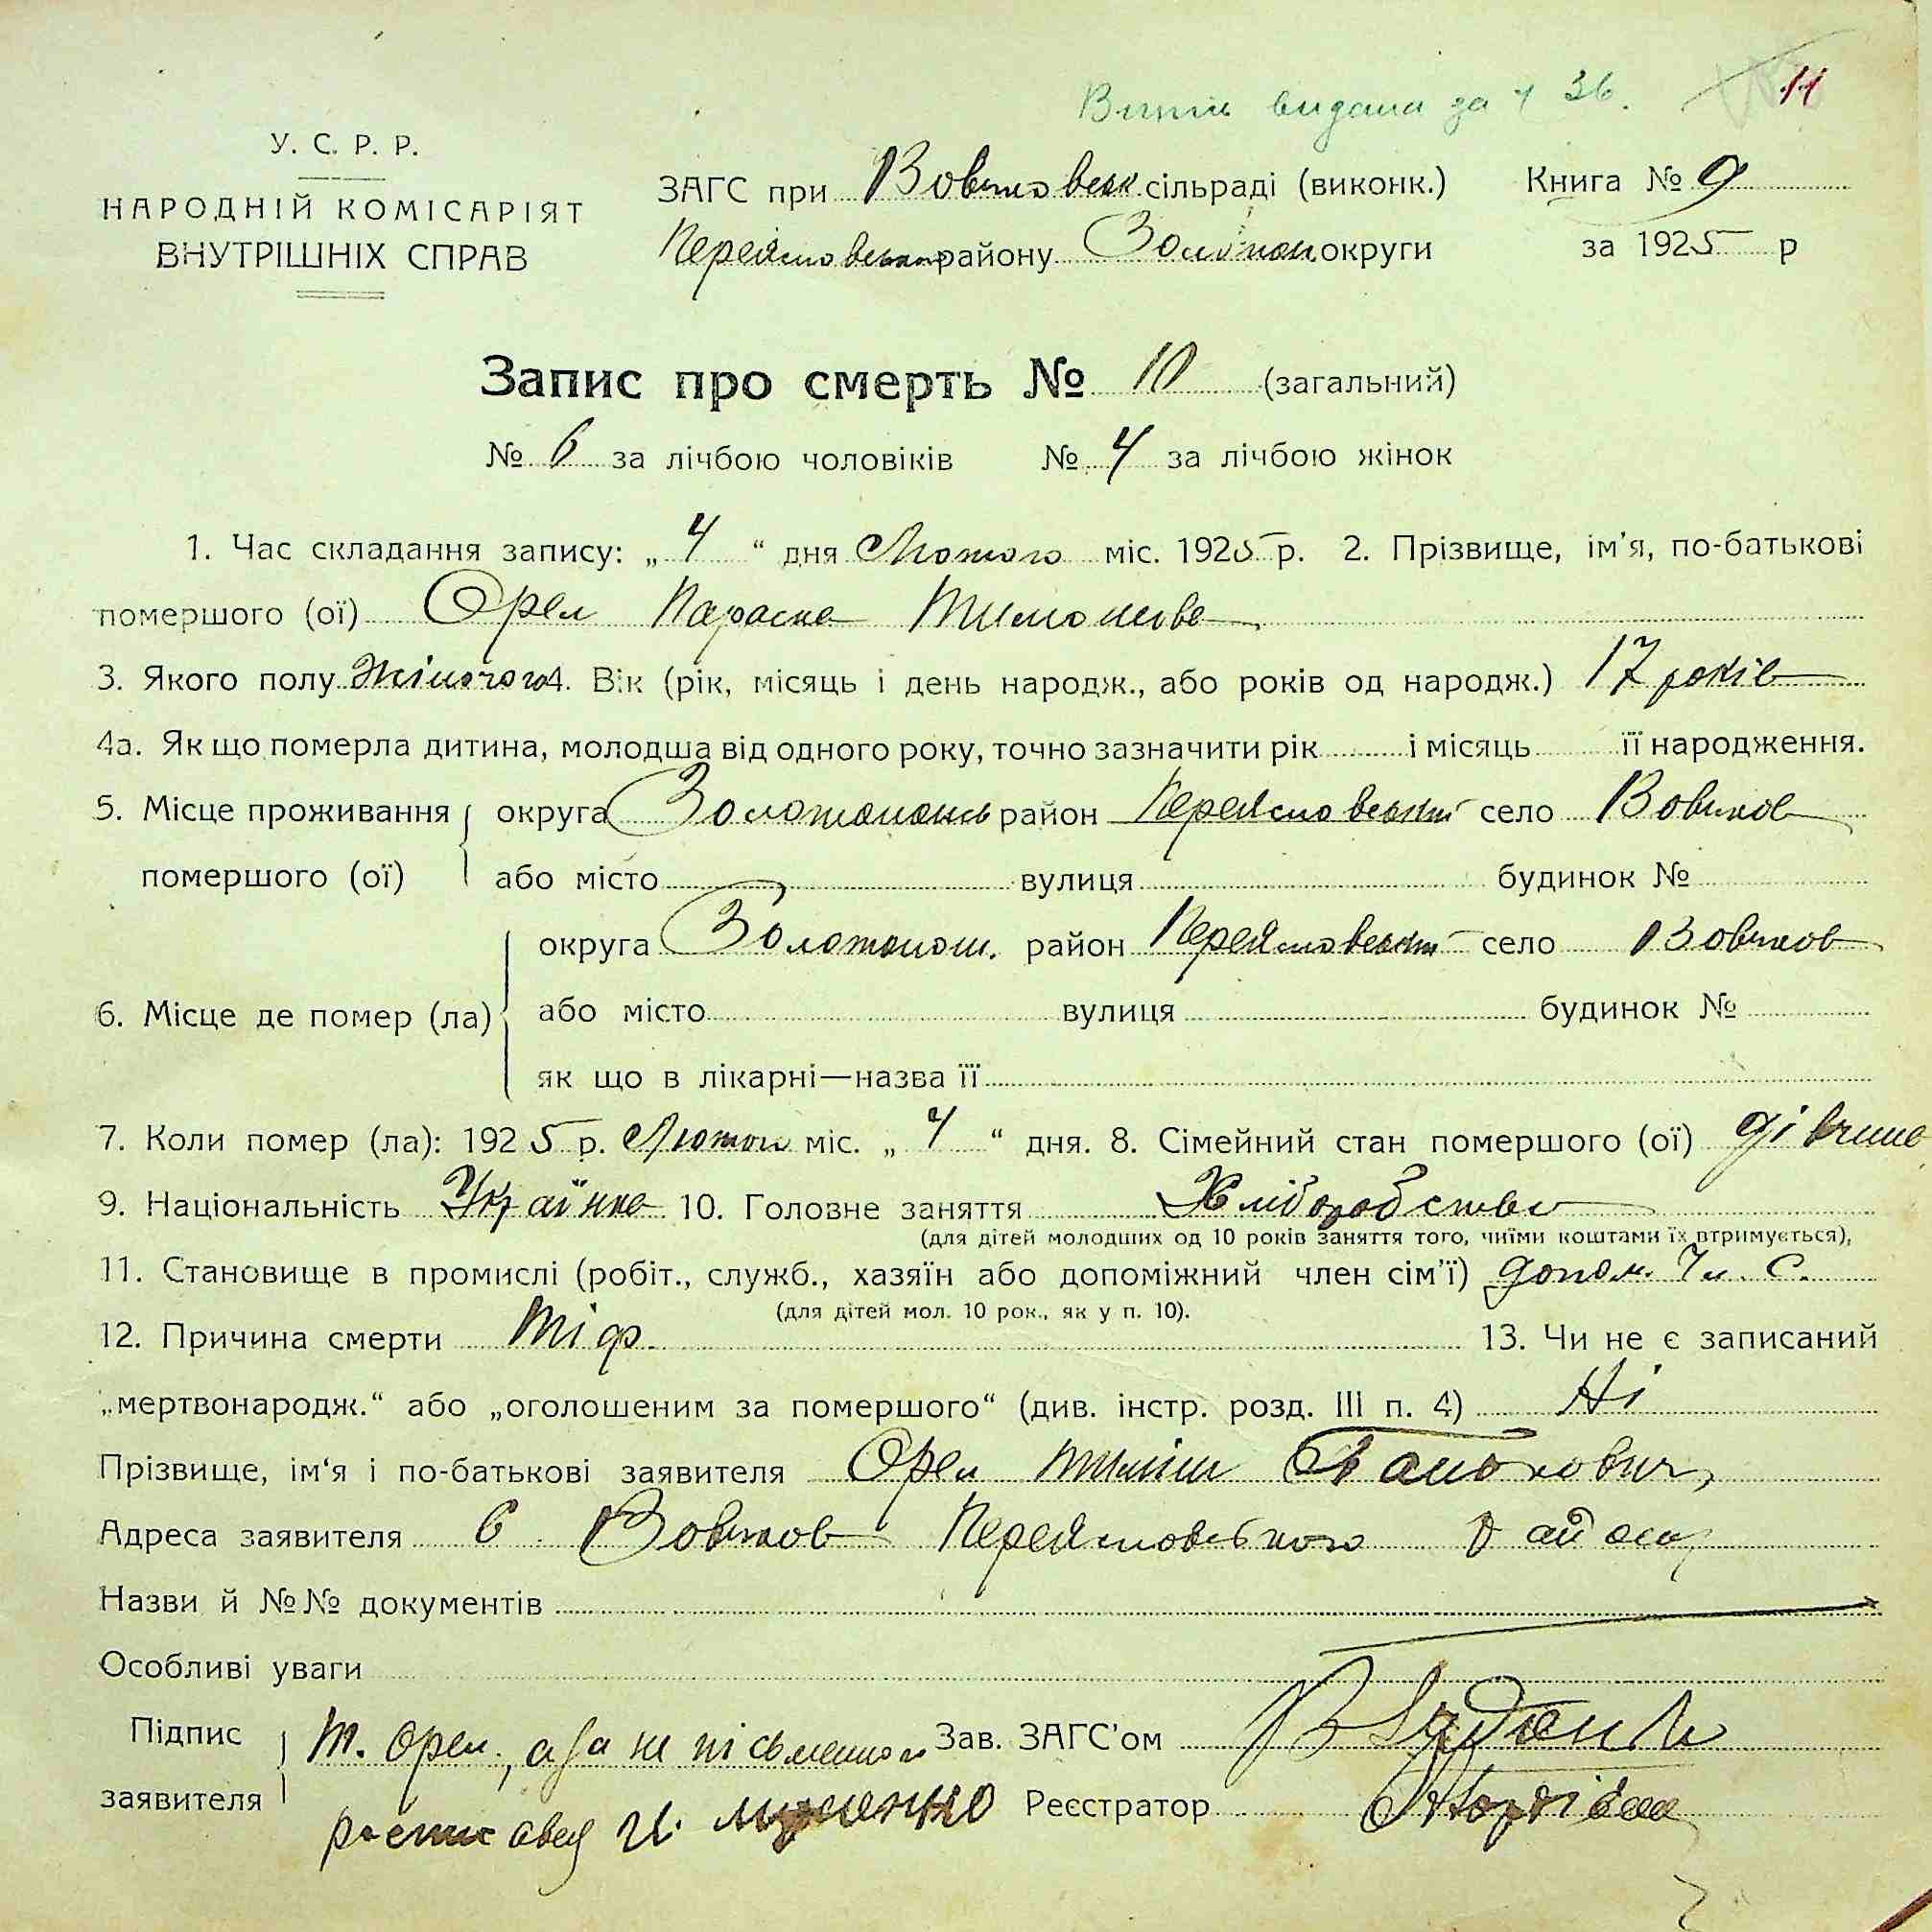 видана за 36. 11
У. С. Р. Р.
НАРОДНІЙ КОМІСАРІЯТ
ВНУТРІШНІХ СПРАВ
ЗАГС при Вовчковськ. сільраді (виконк.) Книга № 9
Переяславськ району Золотонош округи за 1925 р
Запис про смерть № 10 (загальний)
№ 6 за лічбою чоловіків № 4 за лічбою жінок
1. Час складання запису: „ 4 “ дня Лютого міс. 1925 р. 2. Прізвище, ім'я, по-батькові
помершого (ої) Орел Параска Тимошова
3. Якого полу Жіночого 4. Вік (рік, місяць і день народж., або років од народж.) 17 років
4а. Як що померла дитина, молодша від одного року, точно зазначити рік і місяць її народження.
5. Місце проживання округа Золотонось район Переяславський село Вовчков
помершого (ої) або місто вулиця будинок №
округа Золотонош. район Переяславський село Вовчков
6. Місце де помер (ла) або місто вулиця будинок №
як що в лікарні—назва її
7. Коли помер (ла): 1925 р. Лютого міс. „ 4 “ дня. 8. Сімейний стан помершого (ої) дівчина
9. Національність Українка 10. Головне заняття Хліборобство
(для дітей молодших од 10 років заняття того, чиїми коштами їх втримується),
11. Становище в промислі (робіт., служб., хазяїн або допоміжний член сім'ї) допом. Чл. С.
(для дітей мол. 10 рок., як у п. 10).
12. Причина смерти Тіф. 13. Чи не є записаний
„мертвонародж.“ або „оголошеним за помершого“ (див. інстр. розд. III п. 4) Ні
Прізвище, ім‘я і по-батькові заявителя Орел Тиміш
Адреса заявителя с Вовчков Переяславського району
Назви й №№ документів
Особливі уваги
Підпис Т. Орел, а за не письменного Зав. ЗАГС'ом
заявителя росписавсь Реєстратор